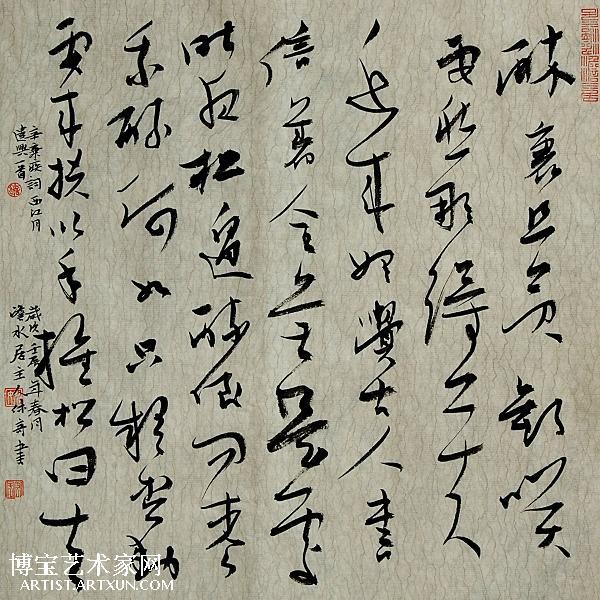 醉裏且貪歡笑
要愁那得工夫
近來始覺古人書
信著全無是處
昨夜松邊醉倒問松
我醉何如只疑松動
要來扶以手推松曰去
辛棄疾詞西江月
遣興一首
歲次壬辰年春月
水居主人書
博宝艺术家网
ARTIST.ARTXUN.COM